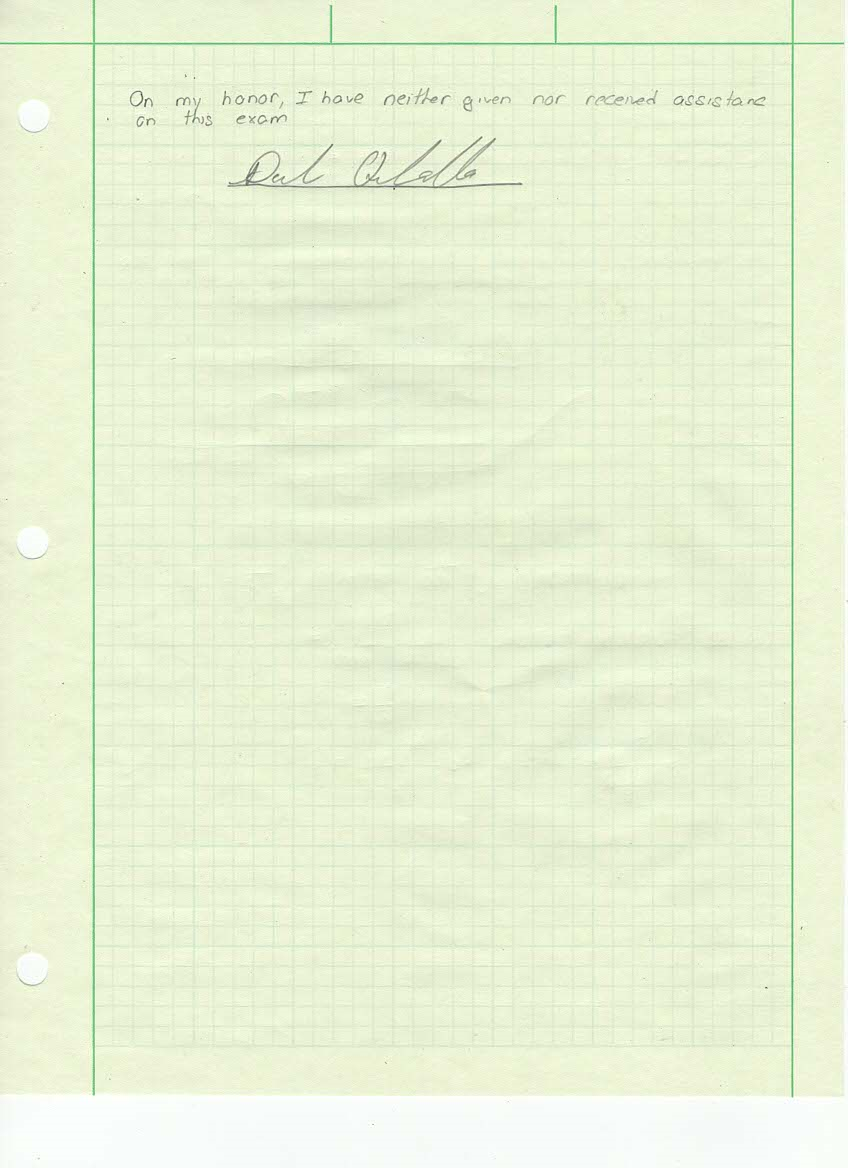 On my honor, I have neither given nor received assistanc
on this exam